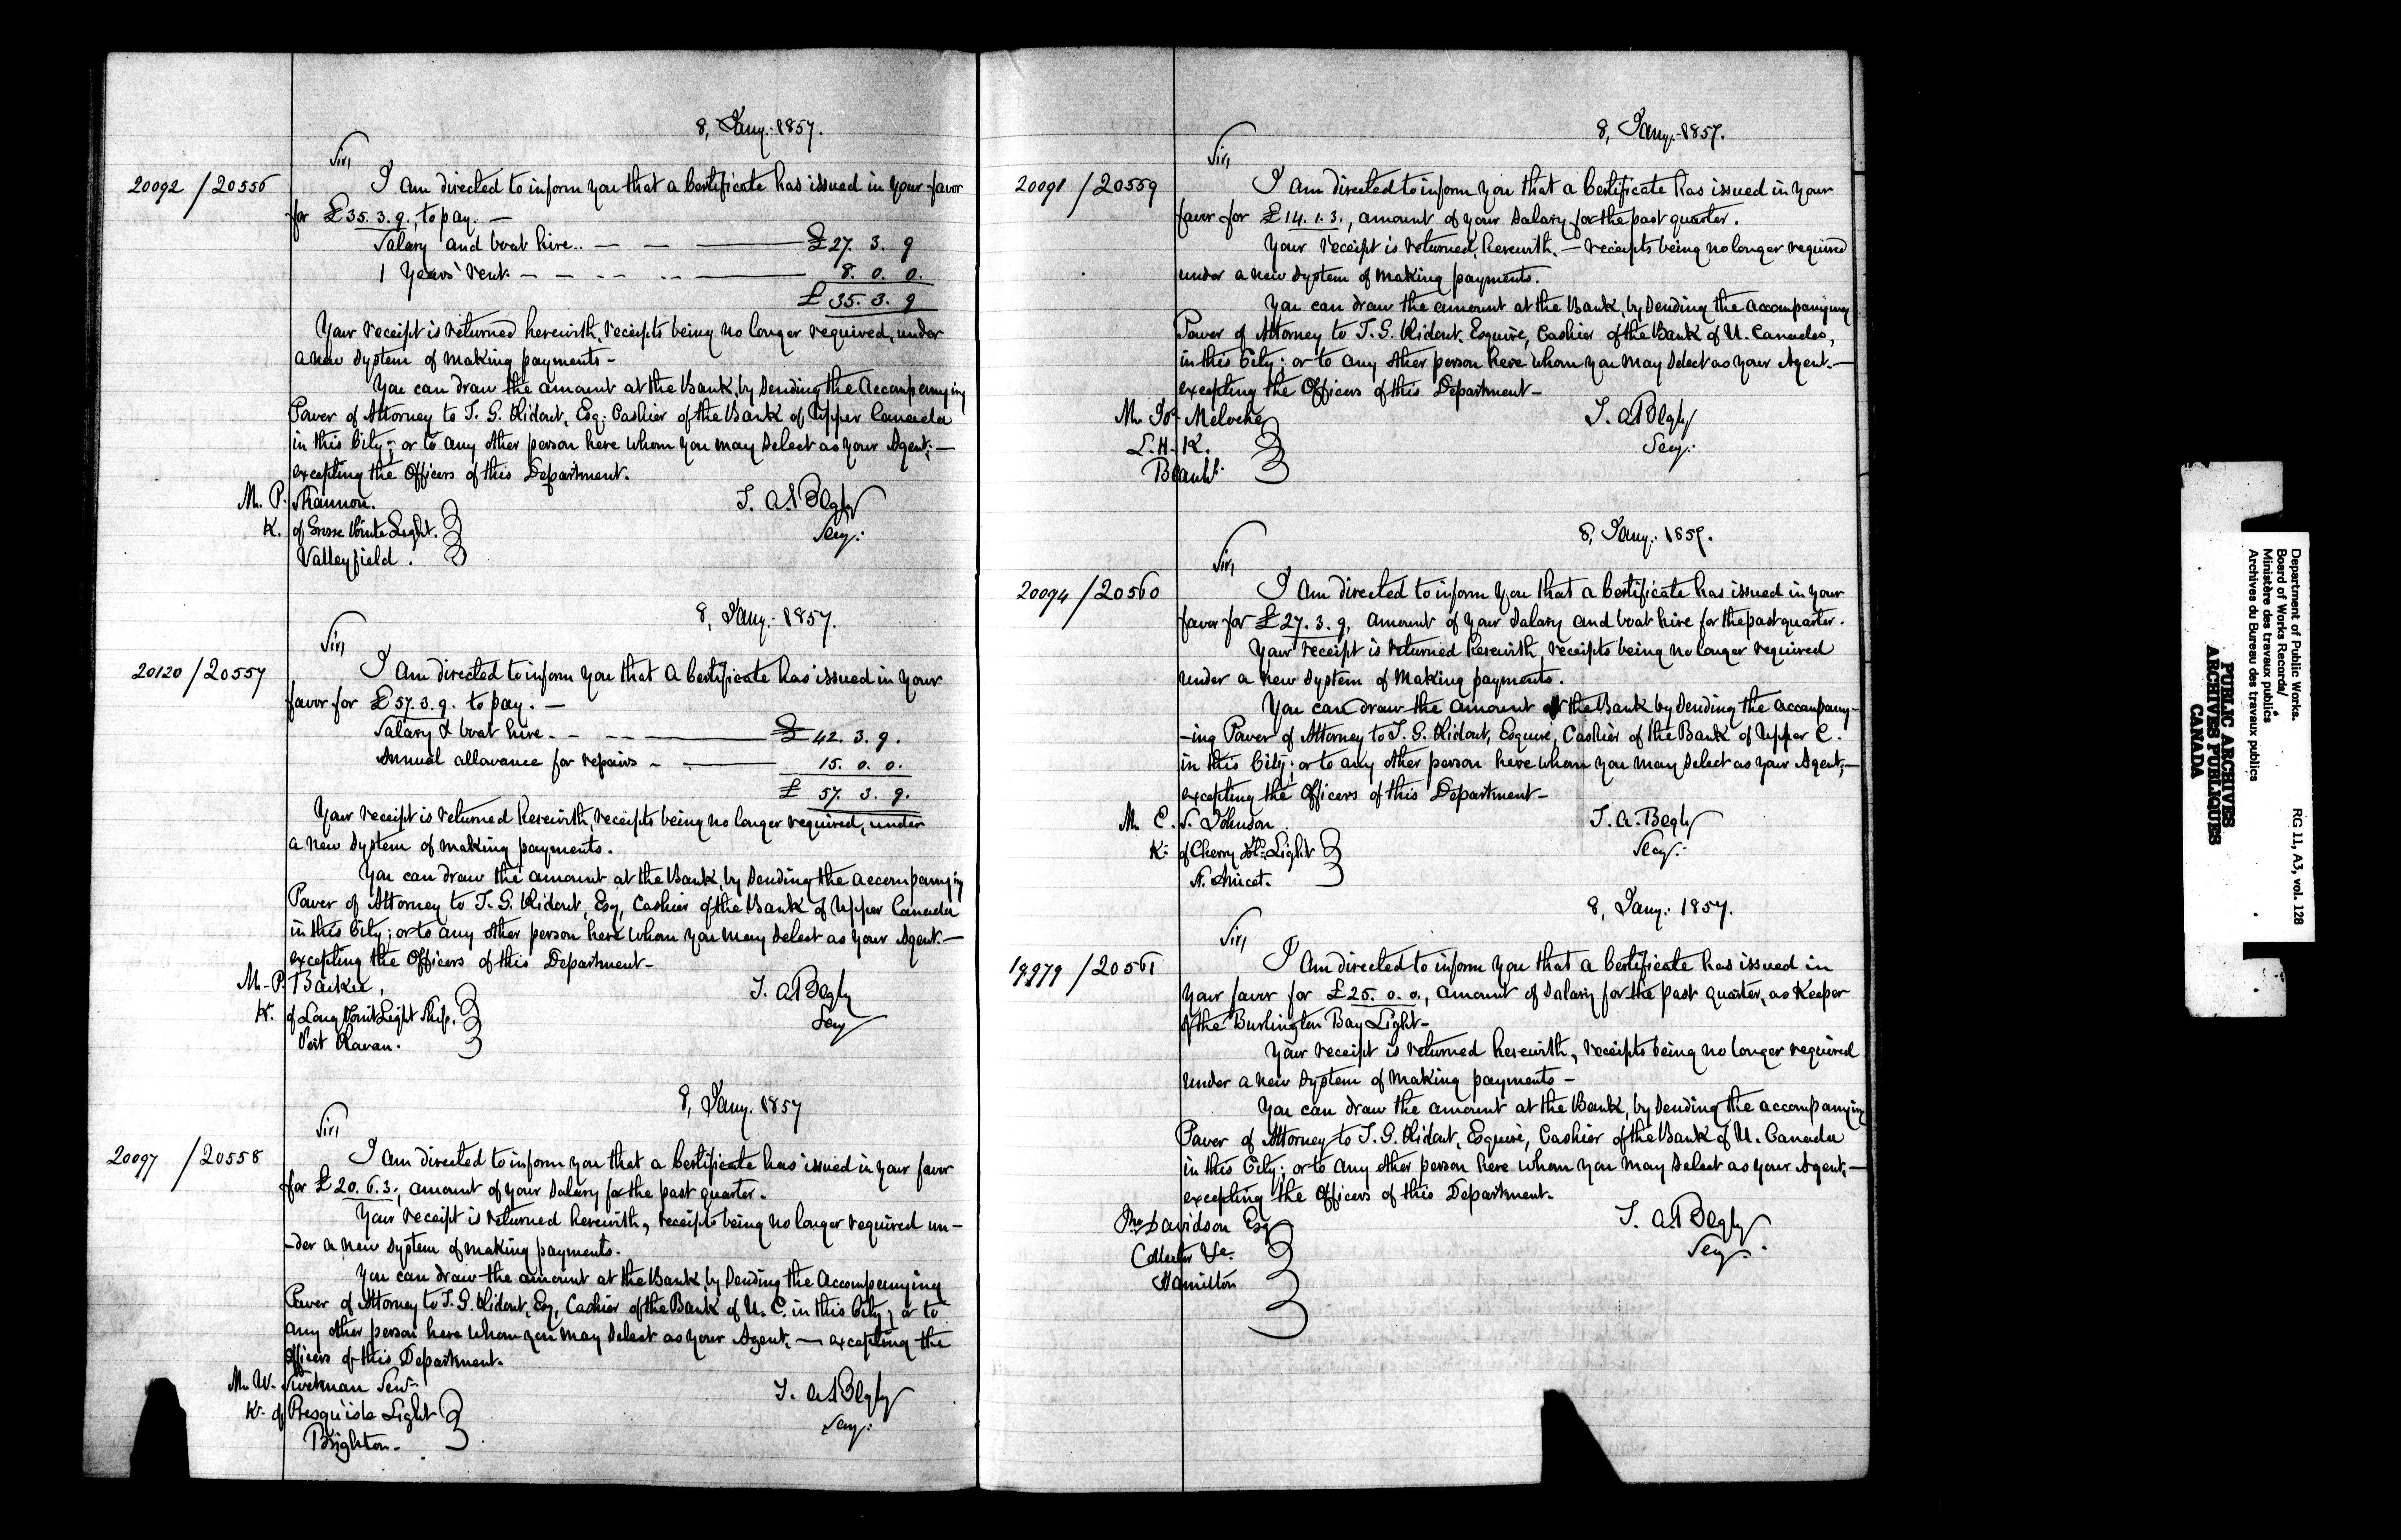 8, Jany. 1857.
Sir,
20092 / 20556 I am directed to inform you that a Certificate has issued in your favor
for £35. 3. 9., to pay. —
Salary and boat hire.. — — — £27. 3. 9
1 Years' rent. — — — — 8. 0. 0.
£ 35. 3. 9
Your receipt is returned herewith, receipts being no longer required, under
a new system of making payments —
You can draw the amount at the Bank, by sending the accompanying
Power of Attorney to T. G. Ridout, Esq. Cashier of the Bank of Upper Canada
in this City; or to any other person here whom you may select as your Agent; —
excepting the Officers of this Department.
Mr. P. Shannon. T. A. Begly
K. of Grosse Pointe Light. Secy.
Valleyfield.
8, Jany. 1857.
Sir,
20120 / 20557 I am directed to inform you that a Certificate has issued in your
favor for £57. 3. 9. to pay. —
Salary & boat hire. — — — £ 42. 3. 9.
Annual allowance for repairs — — 15. 0. 0.
£ 57. 3. 9.
Your receipt is returned herewith, receipts being no longer required, under
a new system of making payments.
You can draw the amount at the Bank, by sending the accompanying
Power of Attorney to T. G. Ridout, Esq, Cashier of the Bank of Upper Canada
in this City; or to any other person here whom you may select as your Agent. —
excepting the Officers of this Department —
Mr. P. Barker, T. A. Begly
K. of Long Point Light Ship. Secy
Port Rowan.
8, Jany. 1857
Sir,
20097 / 20558 I am directed to inform you that a Certificate has issued in your favor
for £20. 6. 3., amount of your salary for the past quarter.
Your receipt is returned herewith, receipts being no longer required un-
-der a new system of making payments.
You can draw the amount at the Bank, by sending the accompanying
Power of Attorney to T. G. Ridout, Esq, Cashier of the Bank of U. C. in this City; or to
any other person here whom you may select as your Agent, — excepting the
Officers of this Department.
Mr. W. Swetman Senr. T. A. Begly
K. of Presqu'isle Light Secy.
Brighton —
8, Jany. 1857.
Sir,
20091 / 20559 I am directed to inform you that a Certificate has issued in your
favor for £14. 1. 3., amount of your salary for the past quarter.
Your receipt is returned, herewith, — receipts being no longer required
under a new system of making payments.
You can draw the amount at the Bank, by sending the accompanying
Power of Attorney to T. G. Ridout, Esquire, Cashier of the Bank of U. Canada,
in this City; or to any other person here whom you may select as your Agent. —
excepting the Officers of this Department —
Mr. Jos. Meloche T. A. Begly
L. H. K. Secy.
8, Jany. 1857.
Sir,
20094 / 20560 I am directed to inform you that a Certificate has issued in your
favor for £27. 3. 9, amount of your salary and boat hire for the past quarter.
Your receipt is returned herewith, receipts being no longer required
under a new system of making payments.
You can draw the amount at the Bank by sending the accompany-
-ing Power of Attorney to T. G. Ridout, Esquire, Cashier of the Bank of Upper C.
in this City; or to any other person here whom you may select as your Agent; —
excepting the Officers of this Department —
Mr. C. S. Johnson T. A. Begly
K. of Cherry Isld. Light Secy.
St. Anicet.
8, Jany. 1857.
Sir,
19979 / 20561 I am directed to inform you that a Certificate has issued in
your favor for £25. 0. 0., amount of salary for the past quarter, as Keeper
of the Burlington Bay Light —
Your receipt is returned herewith, receipts being no longer required
under a new system of making payments —
You can draw the amount at the Bank, by sending the accompanying
Power of Attorney to T. G. Ridout, Esquire, Cashier of the Bank of U. Canada
in this City; or to any other person here whom you may select as your Agent; —
excepting the Officers of this Department.
Jno. Davidson Esq T. A. Begly
Collector &c. Secy.
Hamilton
Department of Public Works. RG 11, A3, vol. 128
Board of Works Records/
Ministère des travaux publics
Archives du Bureau des travaux publics
PUBLIC ARCHIVES
ARCHIVES PUBLIQUES
CANADA